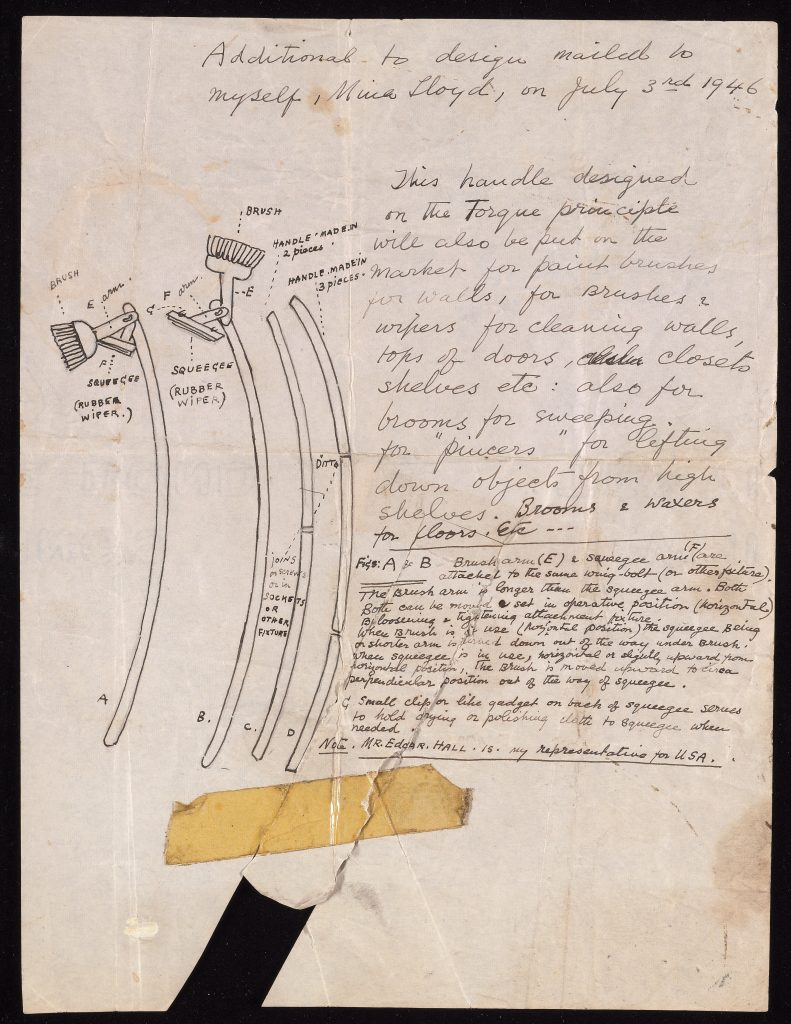 Additional to design mailed to
myself, Mina Lloyd, on July 3rd 1946
This handle designed
on the Torque principle
will also be put on the
market for paint brushes
for walls, for Brushes &
wipers for cleaning walls,
tops of doors, closets
shelves etc: also for
brooms for sweeping.
for "pincers" for lifting
down objects from high
shelves. Brooms & waxers
for floors. Etc ---
BRUSH
E arm
F
SQUEEGEE
(RUBBER
WIPER.)
A
BRUSH
F arm
G
E
SQUEEGEE
(RUBBER
WIPER)
B.
HANDLE·MADE.IN
2 pieces.
HANDLE.MADE IN
3 PIECES.
DITTO
JOINS
or screws
or in
SOCKETS
OR
OTHER
FIXTURE
C.
D
Figs: A & B Brush arm (E) & squeegee arm (F) are
attached to the same wing-bolt (or other fixture).
The Brush arm is longer than the squeegee arm. Both
Both can be moved & set in operative position (horizontal)
By loosening & tightening attachment fixture.
When Brush is in use (horizontal position) the squeegee Being
on shorter arm is turned down out of the way under Brush.
when squeegee is in use, horizontal or slightly upward from
horizontal position, The Brush is moved upward to circa
perpendicular position out of the way of squeegee.
G Small clip or like gadget on back of squeegee serves
to hold drying or polishing cloth to squeegee when
needed
Note. MR. EDGAR. HALL. is. my representative for USA.